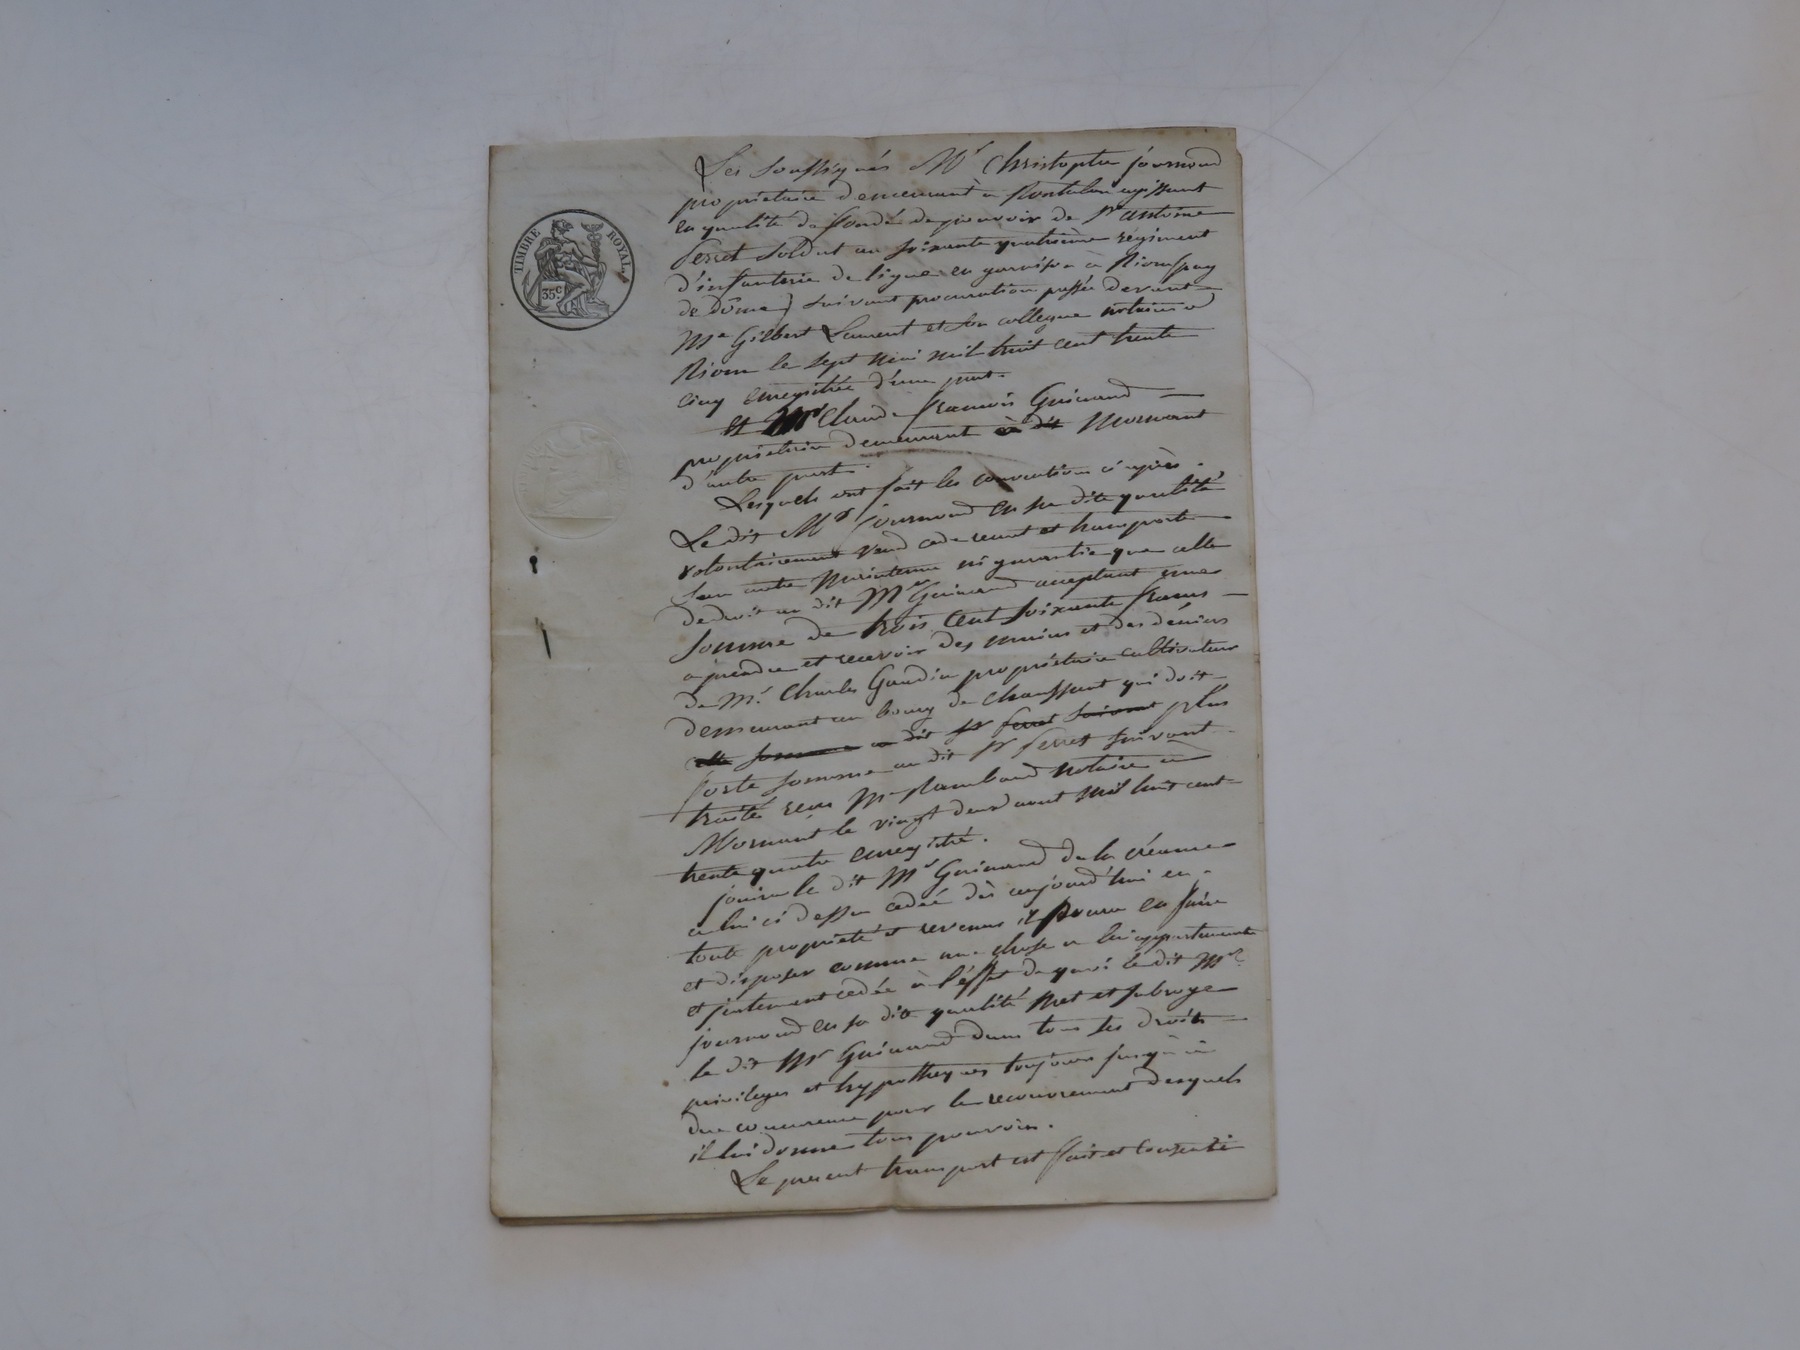 TIMBRE ROYAL
35c
Les Soussignés Mr Christophe journoud
propriétaire demeurant à Rontalon agissant
en qualité de fondé de pouvoir de Sr antoine
ferret Soldat au Soixante quatrième régiment
d'infanterie de ligne en garnison à Riom (puy
de dôme) suivant procuration passée devant
Me Gilbert Laurent et Son collegue notaires a
Riom le sept mai mil huit cent trente
cinq enregistrée d'une part.
et Mr Claude françois Guinand
propriétaire demeurant à dit Mornant
d'autre part.
Lesquels ont fait les conventions ci après.
Le dit Mr journoud en sa dite qualité
volontairement vend cede remet et transporte
San autre Maintenue ni garantie que celle
de droit au dit Mr Guinand acceptant une
Somme de trois Cent Soixante francs
a prendre et recevoir des mains et des déniers
de Mr Charles Gaudin propriétaire cultivateur
demeurant au bourg de Chaussant qui doit
Somme au dit Sr ferret Suivant plus
forte Somme au dit Sr ferret Suivant
traité reçu Me notaire à
Mornant le vingt deux aout mil huit cent
trente quatre enregistré.
jouira le dit Mr Guinand de la créance
a lui ci dessu cedée dès aujourd'hui en
toute propriété et revenus il poura en faire
et disposer comme une chose a lui appartenante
et justement cedée à l'effet de quoi le dit Mr
journoud en sa dite qualité Met et subroge
le dit Mr Guinand dans tous les droits
privileges et hypotheques toujours jusqu'à
due concurence pour le recouvrement desquels
il lui donne tous pouvoirs.
Le présent transport est fait et consenti